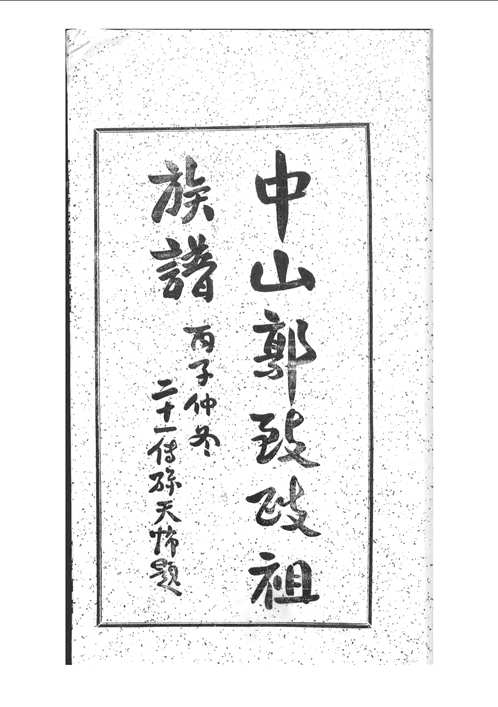 中山郭致岐祖
族譜
丙子仲冬
二十一傳孫天
題